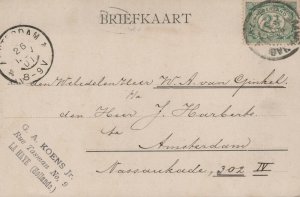 BRIEFKAART
AMSTERDAM
26
8-9V
2½
den WelEdelen Heer W. A. van Ginkel
p/a
den Heer J. Harberts
te
Amsterdam
Nassaukade, 302 IV
G. A. KOENS Jr.
Rue Tasman No. 9
LA HAYE (Hollande)